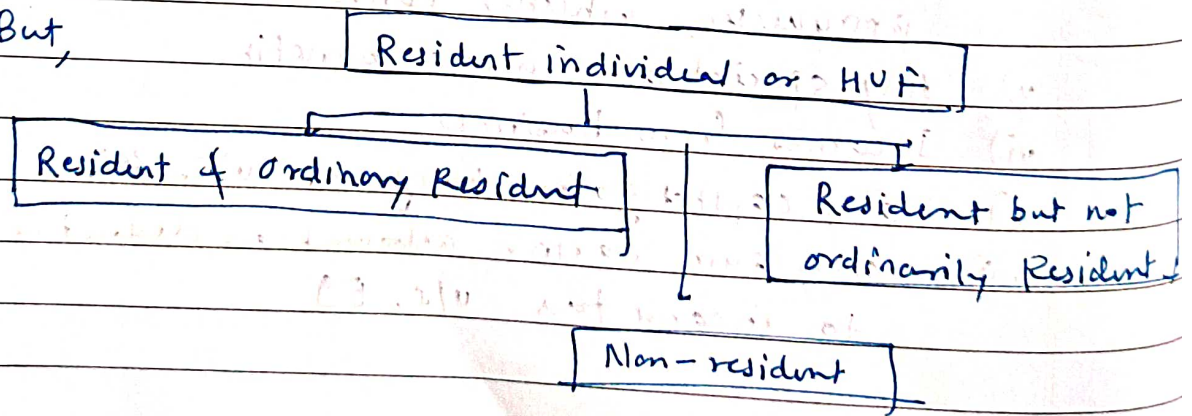 But,
Resident individual or HUF
Resident & Ordinary Resident
Resident but not
ordinarily Resident
Non-resident